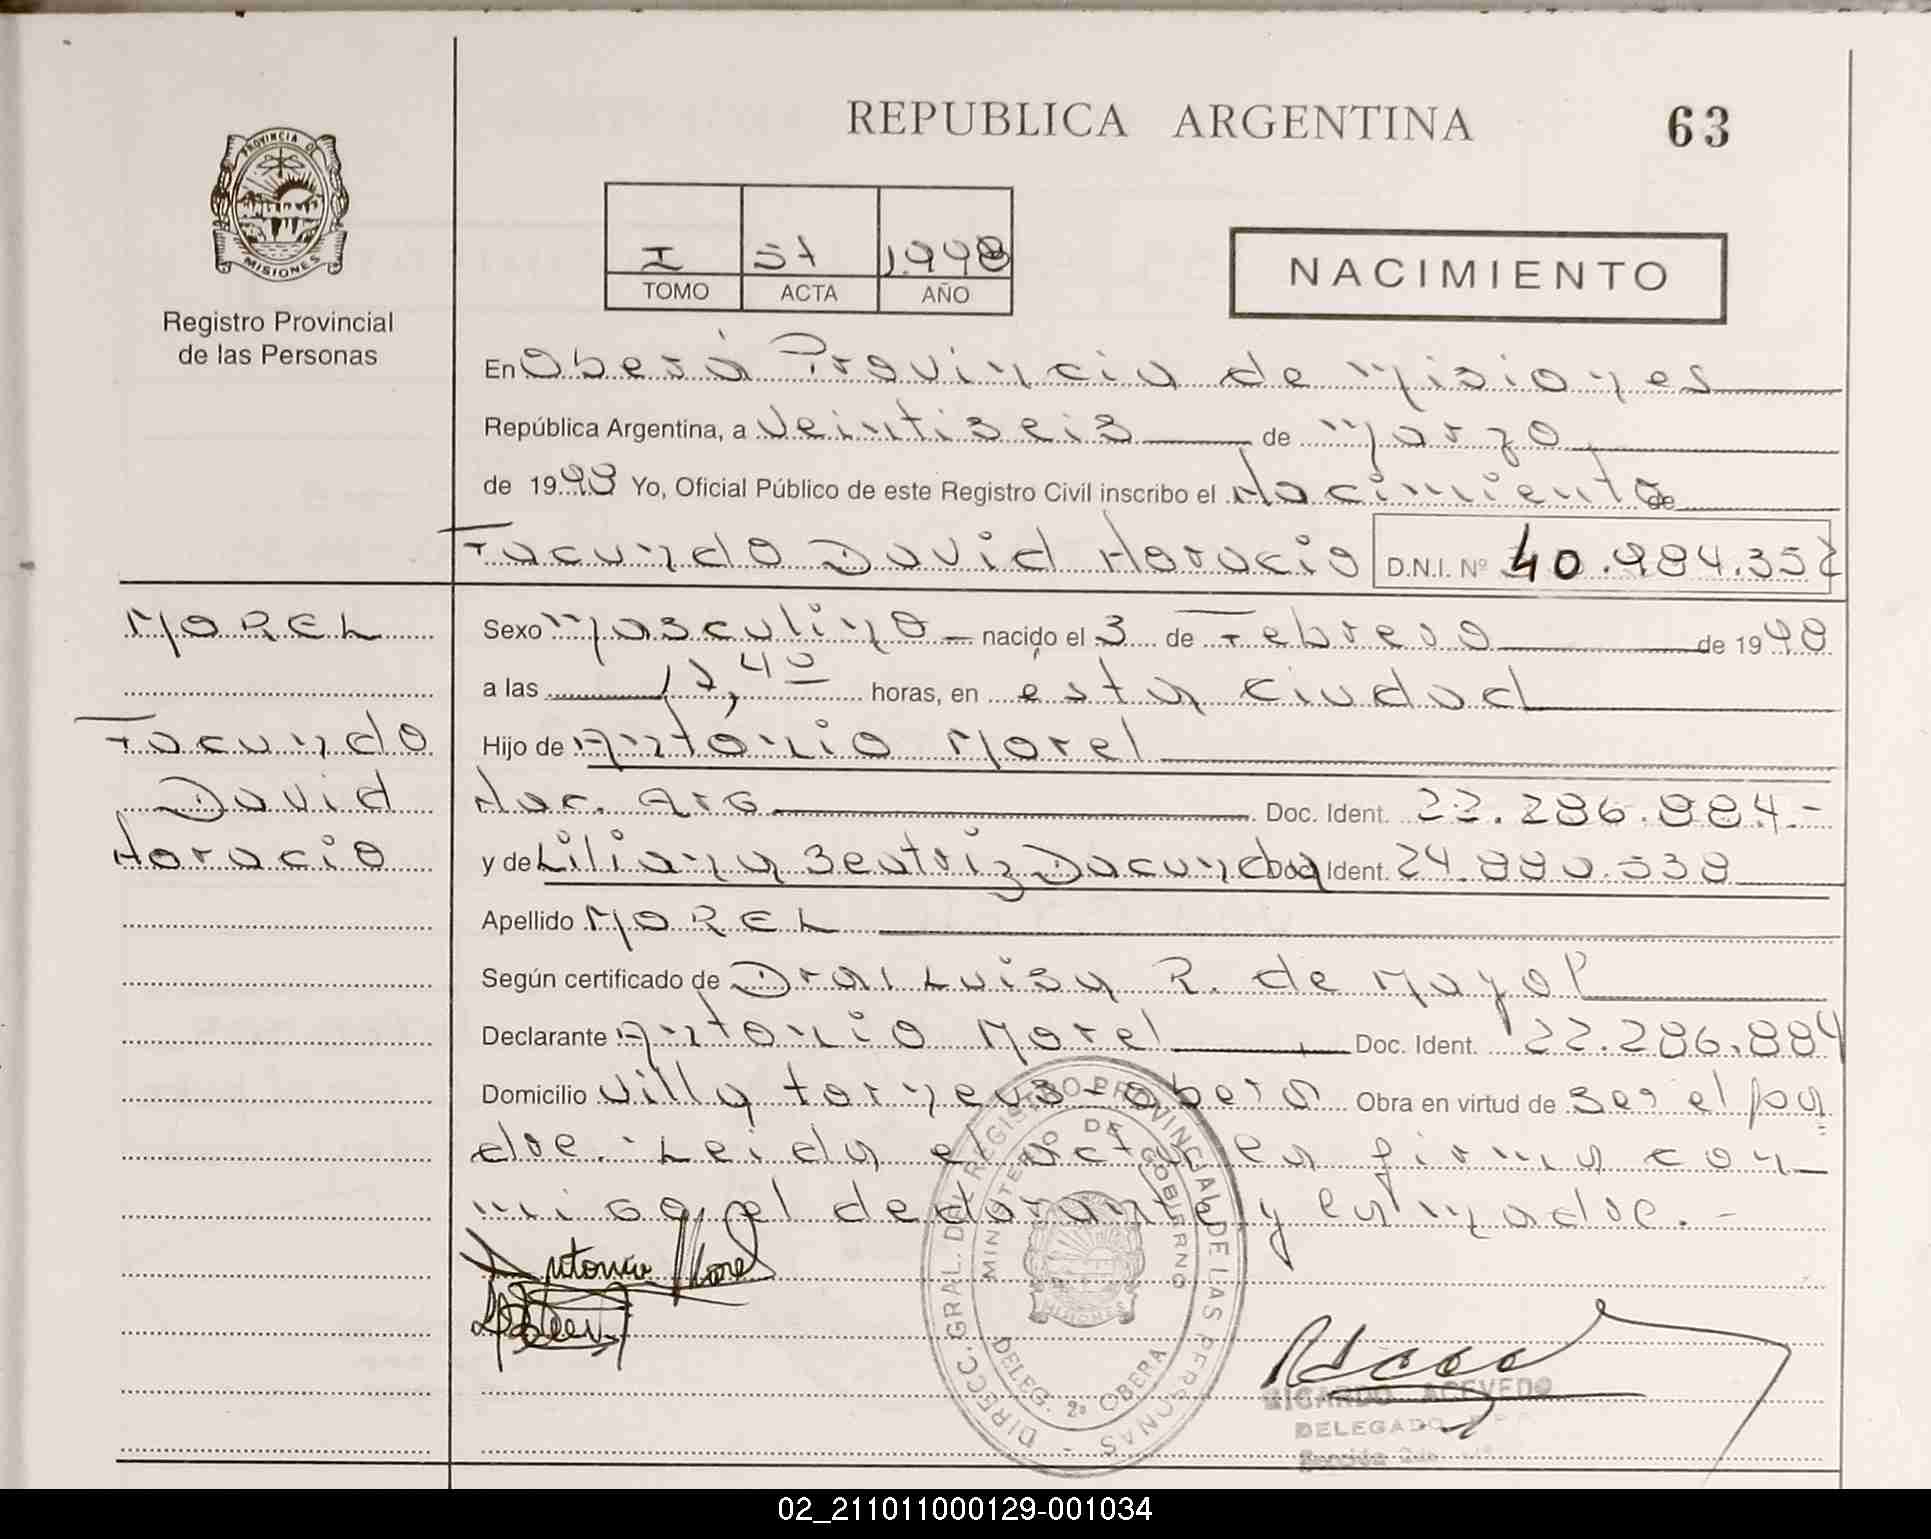 REPUBLICA ARGENTINA
63
PROVINCIA DE
MISIONES
Registro Provincial
de las Personas
I 57 1.998
TOMO ACTA AÑO
NACIMIENTO
En Oberá Provincia de Misiones
República Argentina, a veintiseis de marzo
de 1998 Yo, Oficial Público de este Registro Civil inscribo el Nacimiento de
Facundo David Horacio D.N.I. Nº 40.984.352
MOREL
Facundo
David
Horacio
Sexo masculino nacido el 3 de Febrero de 1998
a las 17,40 horas, en esta ciudad
Hijo de Antonio Morel
Nac. Arg Doc. Ident. 22.286.884.-
y de Liliana Beatriz Dacunda Doc. Ident. 24.880.538
Apellido MOREL
Según certificado de Dra. Luisa R. de Mayol
Declarante Antonio Morel Doc. Ident. 22.286.884
Domicilio Villa torneus-obera Obra en virtud de ser el pa
dre.- Leida el acta la firma con-
migo el declarante y la madre.-
Antonio Morel
DIRECC. GRAL. DEL REGISTRO PROVINCIAL DE LAS PERSONAS
MINISTERIO DE GOBIERNO
MISIONES
DELEG. 2º OBERA
RICARDO ACEVEDO
DELEGADO
02_211011000129-001034